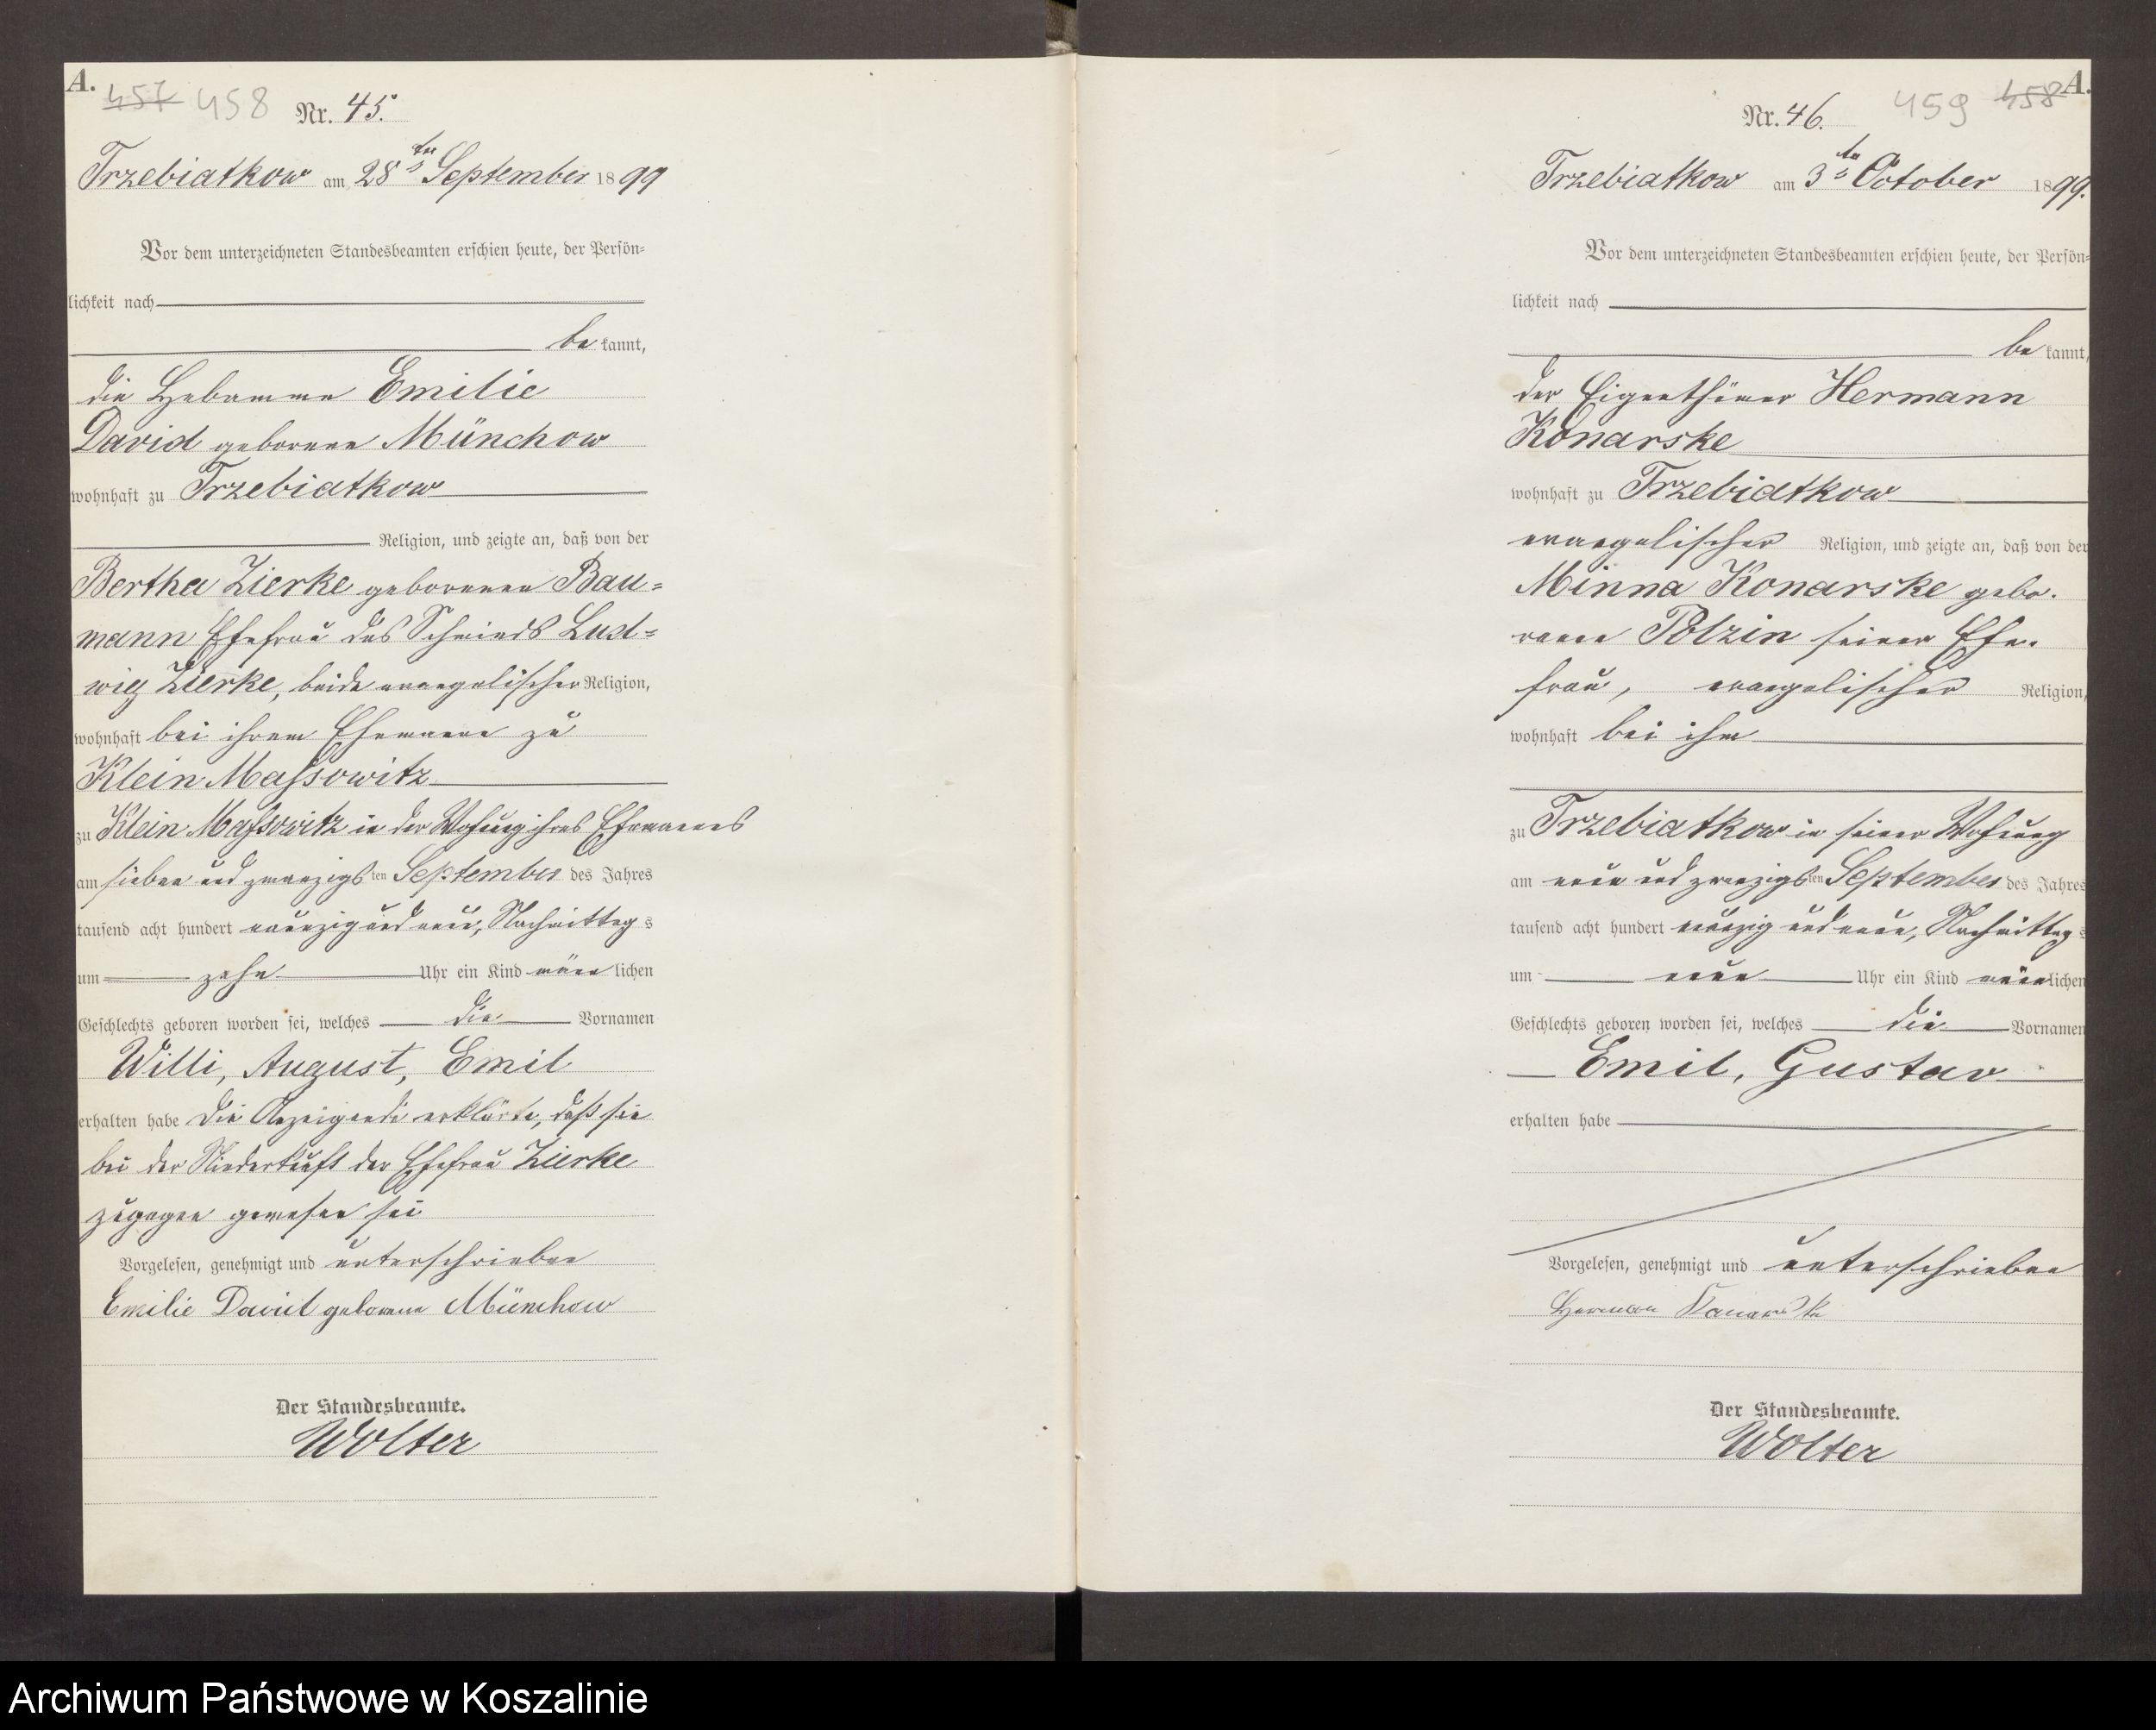 A.
457 458 Nr. 45.
Trzebiatkow am 28ten September 1899
Vor dem unterzeichneten Standesbeamten erschien heute, der Persön=
lichkeit nach
be kannt,
die Hebamme Emilie
David geborene Münchow
wohnhaft zu Trzebiatkow
Religion, und zeigte an, daß von der
Bertha Zierke geborenen Bau=
mann Ehefrau des Schmieds Lud=
wig Zierke, beide evangelischer Religion,
wohnhaft bei ihrem Ehemanne zu
Klein Massowitz
zu Klein Massowitz in der Wohnung ihres Ehemannes
am sieben und zwanzigsten September des Jahres
tausend acht hundert neunzig und neun, Nachmittags
um zehn Uhr ein Kind männlichen
Geschlechts geboren worden sei, welches die Vornamen
Willi, August, Emil
erhalten habe Die Anzeigende erklärte, daß sie
bei der Niederkunft der Ehefrau Zierke
zugegen gewesen sei
Vorgelesen, genehmigt und unterschrieben
Emilie David geborene Münchow
Der Standesbeamte.
Wolter
A.
Nr. 46. 459 458
Trzebiatkow am 3ten October 1899.
Vor dem unterzeichneten Standesbeamten erschien heute, der Persön=
lichkeit nach
be kannt,
der Eigenthümer Hermann
Konarske
wohnhaft zu Trzebiatkow
evangelischer Religion, und zeigte an, daß von der
Minna Konarske gebo-
renen Polzin seiner Ehe-
frau, evangelischer Religion,
wohnhaft bei ihm
zu Trzebiatkow in seiner Wohnung
am neun und zwanzigsten September des Jahres
tausend acht hundert neunzig und neun, Nachmittags
um neun Uhr ein Kind männlichen
Geschlechts geboren worden sei, welches die Vornamen
Emil, Gustav
erhalten habe
Vorgelesen, genehmigt und unterschrieben
Herman Konarske
Der Standesbeamte.
Wolter
Archiwum Państwowe w Koszalinie